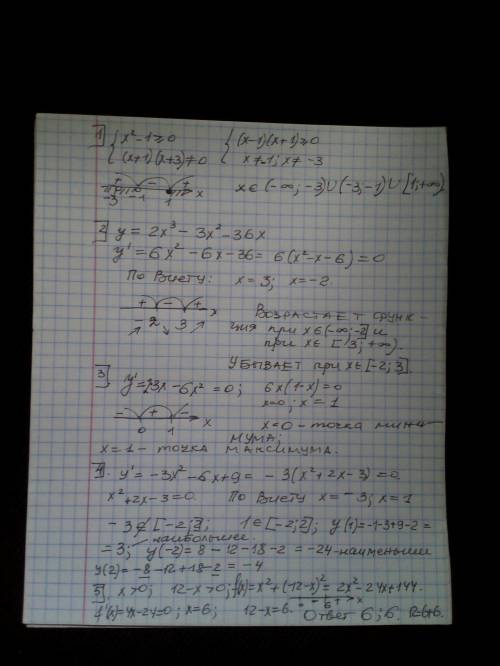 1 { x²-1≥0 { (x-1)(x+1)≥0
(x+1)(x+3)≠0 x≠-1; x≠-3
+ - + x x∈(-∞; -3)∪(-3;-1)∪[1;+∞)
-3 -1 1
2 y = 2x³ - 3x² - 36x
y' = 6x² - 6x - 36 = 6(x²-x-6) = 0
По Виету: x = 3; x = -2
+ - + x Возрастает функ-
-2 3 ция при x∈(-∞;-2] и
при x∈[3;+∞).
Убывает при x∈[-2;3]
3 6x(1-x)=0
x=0; x=1
- + - x x=0 - точка мини-
0 1 мума;
x=1 - точка максимума.
4 y' = -3x² - 6x + 9 = -3(x²+2x-3) = 0
x²+2x-3=0. По Виету x=-3; x=1
-3∉[-2;2]; 1∈[-2;2]; y(1)=-1-3+9-2=
=3; наибольшее. y(-2)=8-12-18-2=-24 - наименьшее
y(2)=-8-12+18-2=-4
5 x>0; 12-x>0; f(x)=x²+(12-x)²=2x²-24x+144
x=6; 12-x=6. - 6 + x Ответ 6; 6. 12=6+6.